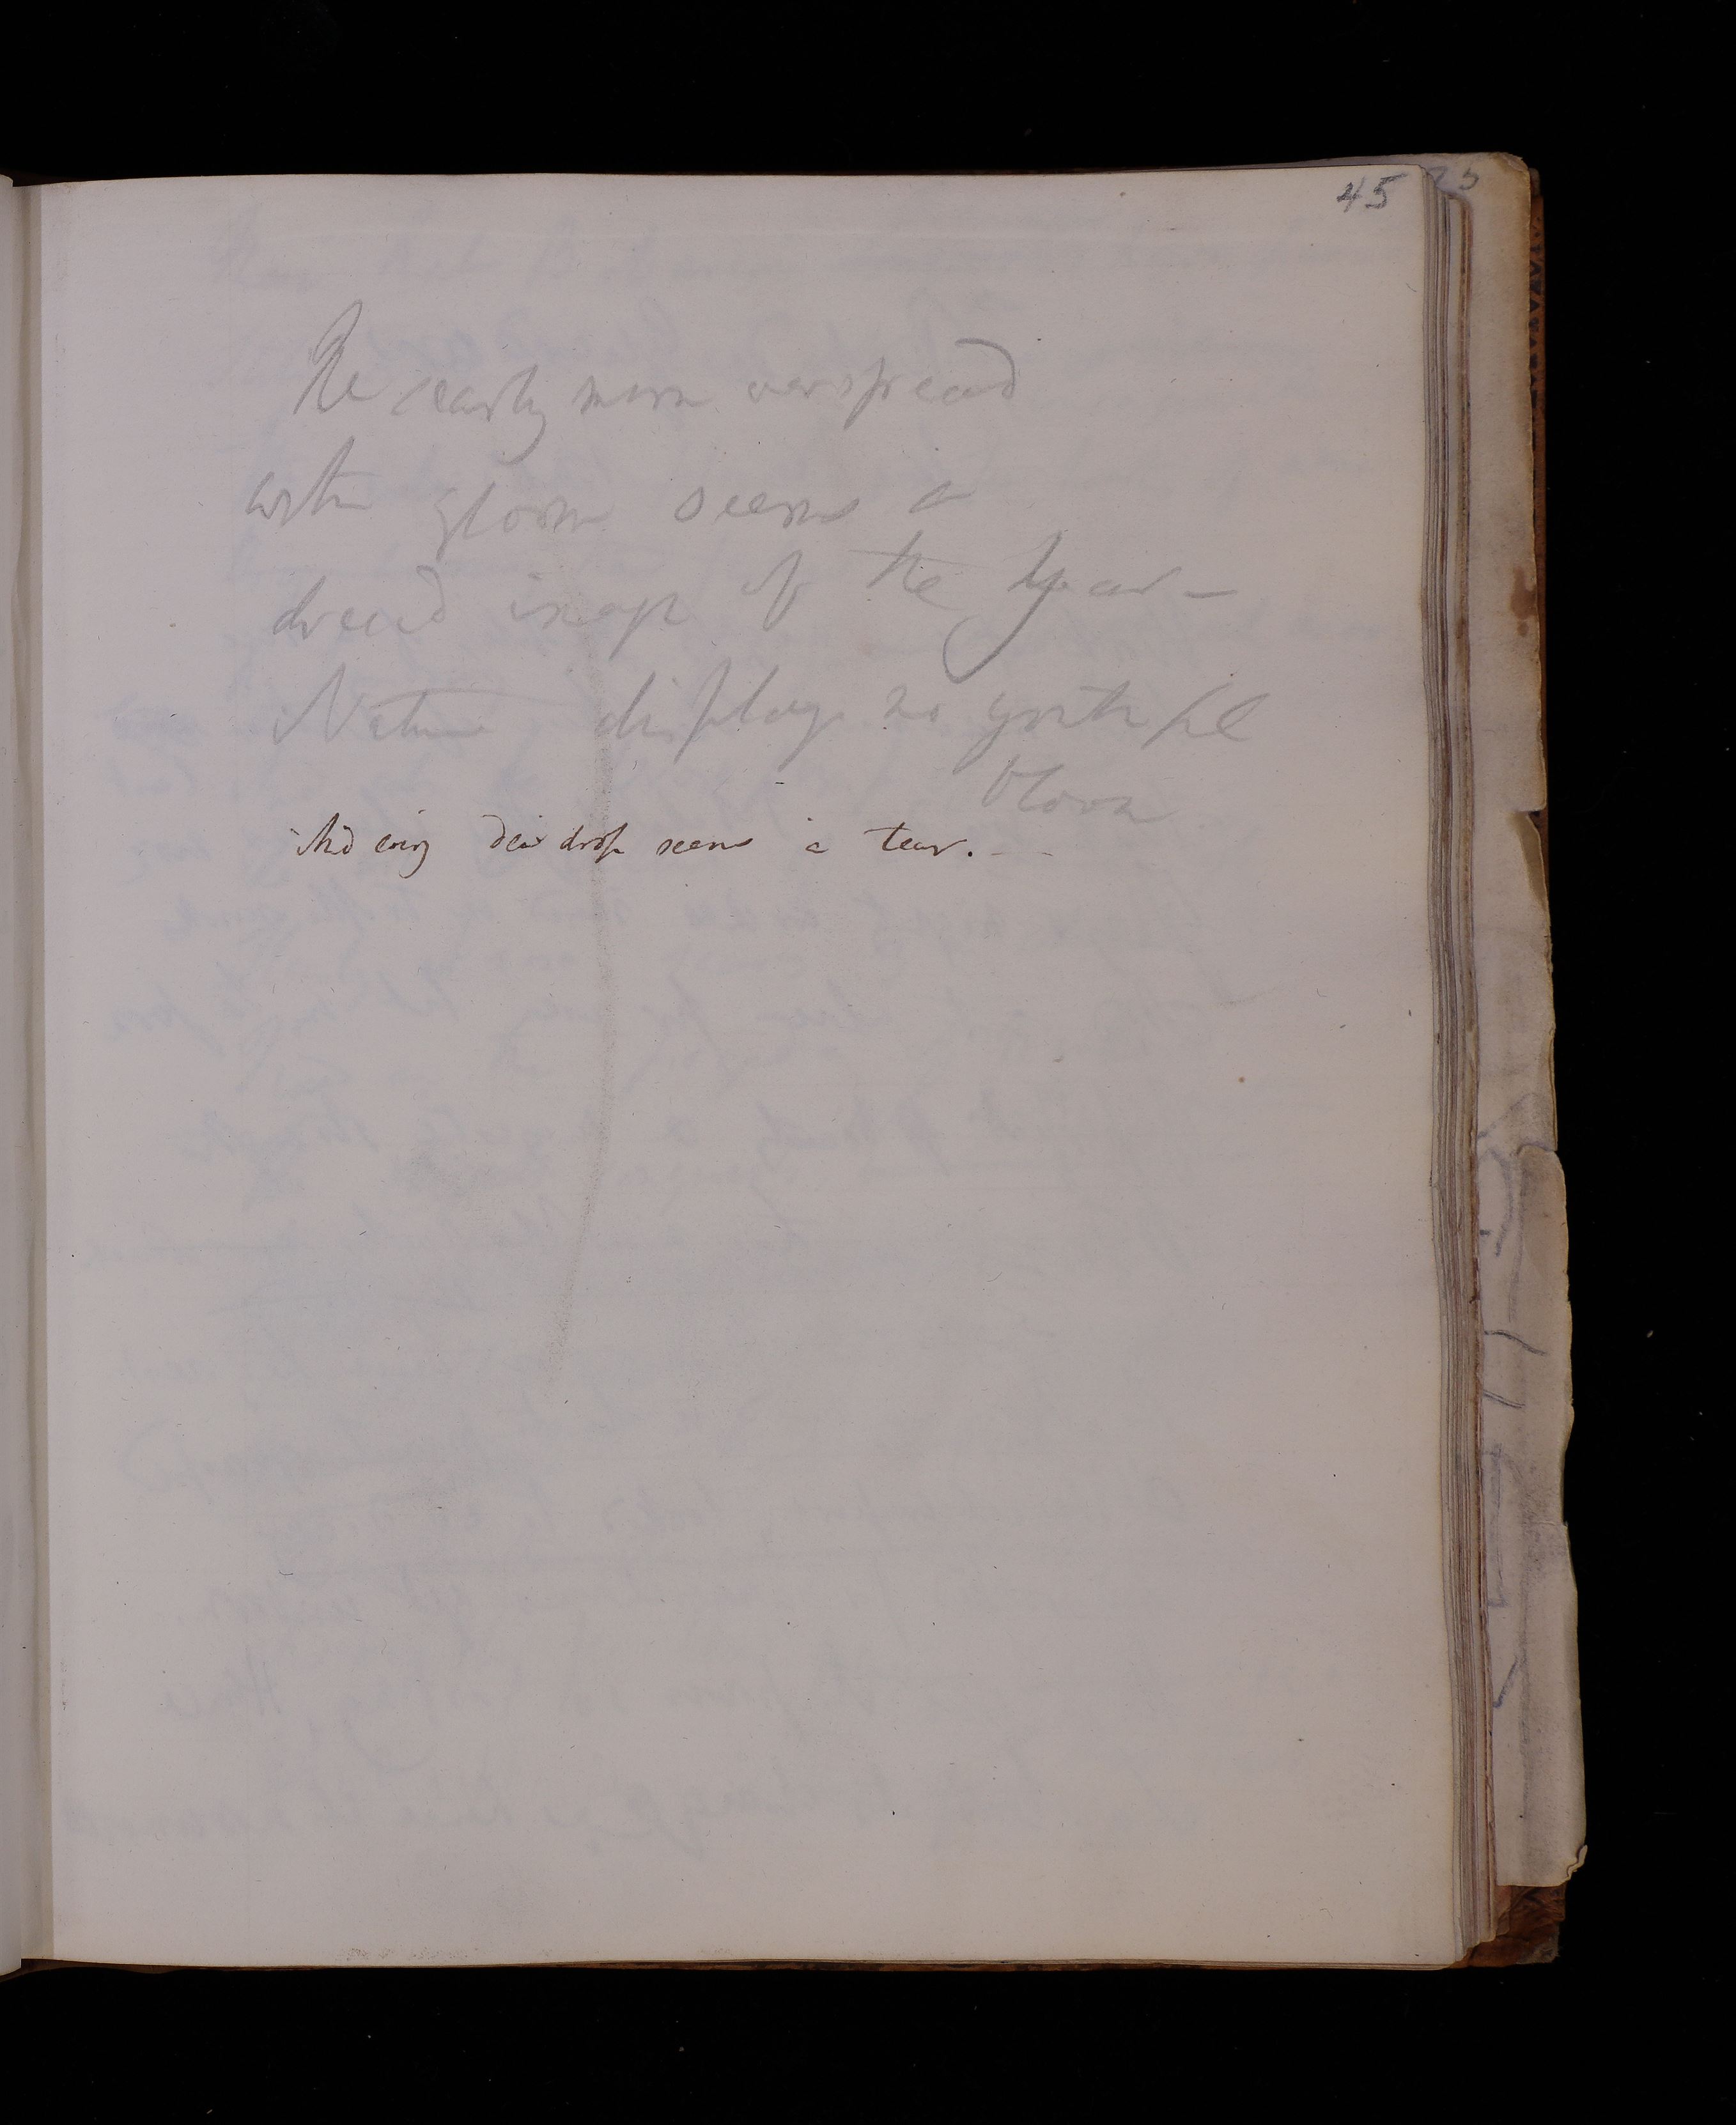 45
25
The early morn overspread
with gloom seems a
dread image of the Year –
Nature displays no grateful
bloom
And every dew drop seems a tear. – –